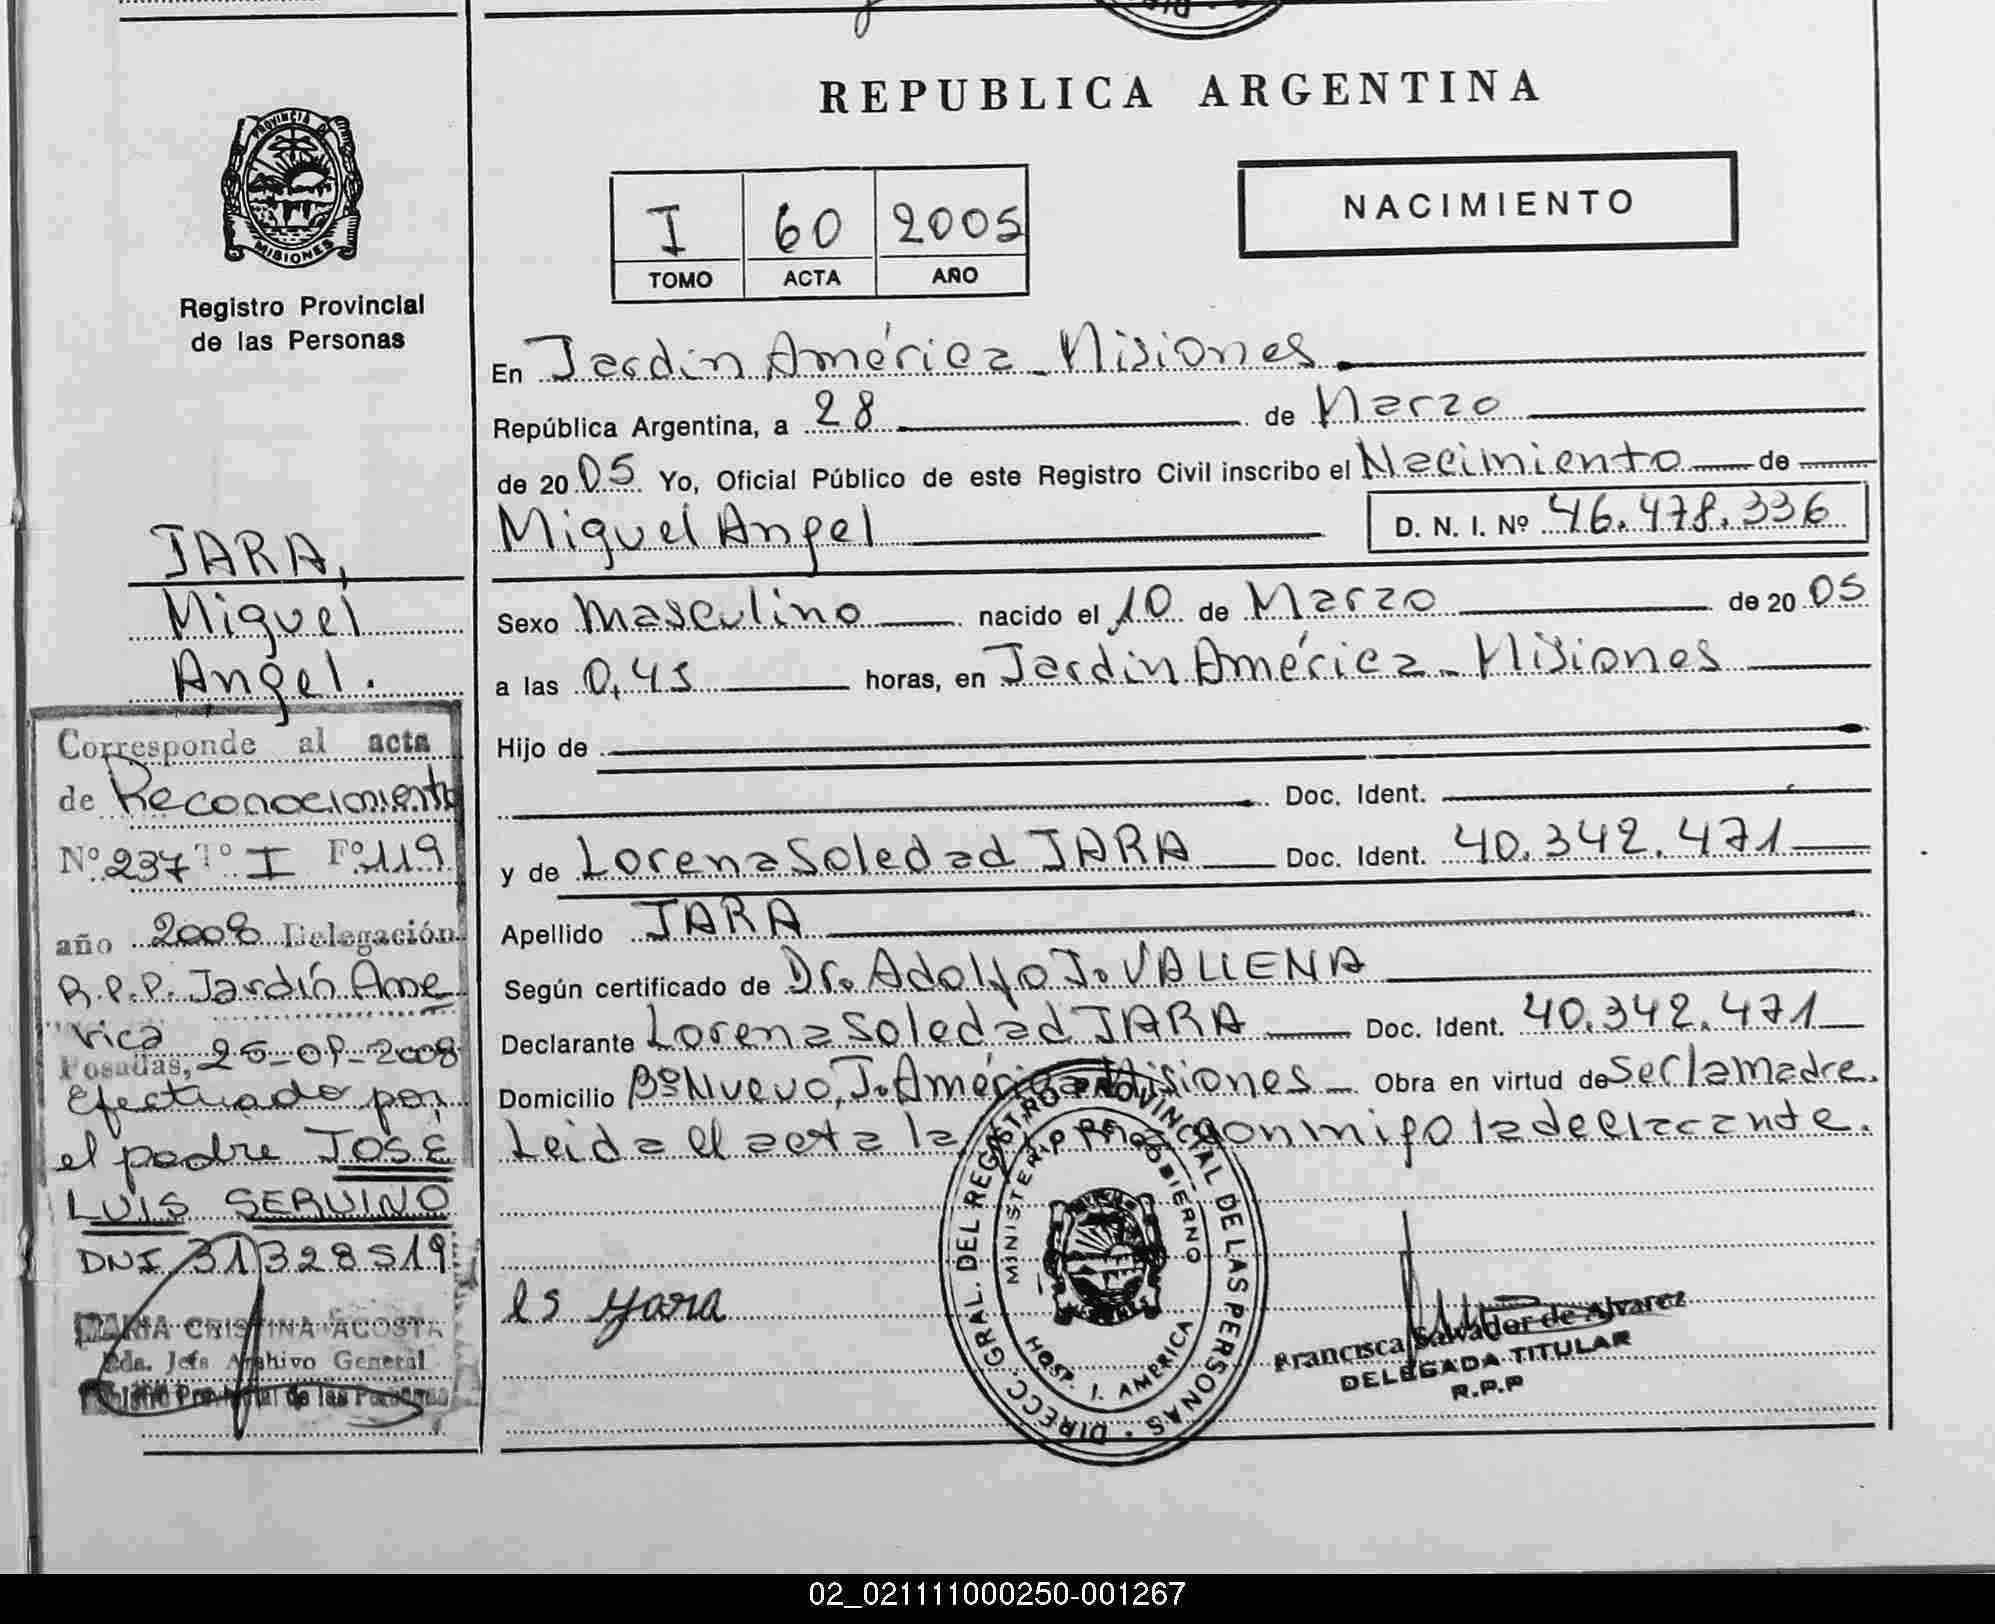 REPUBLICA ARGENTINA
PROVINCIA DE
MISIONES
Registro Provincial
de las Personas
I 60 2005
TOMO ACTA AÑO
NACIMIENTO
En Jardín América - Misiones
República Argentina, a 28 de Marzo
de 2005 Yo, Oficial Público de este Registro Civil inscribo el Nacimiento de
Miguel Angel D. N. I. Nº 46.478.336
Sexo Masculino nacido el 10 de Marzo de 2005
a las 0,45 horas, en Jardín América - Misiones
Hijo de
Doc. Ident.
y de Lorena Soledad JARA Doc. Ident. 40.342.471
Apellido JARA
Según certificado de Dr. Adolfo J. VALLENA
Declarante Lorena Soledad JARA Doc. Ident. 40.342.471
Domicilio Bº Nuevo, J. América Misiones - Obra en virtud de ser la madre.
Leida el acta la firma conmigo la declarante.
ls yara
DIRECC. GRAL. DEL REGISTRO PROVINCIAL DE LAS PERSONAS
MINISTERIO DE GOBIERNO
HOSP. J. AMERICA
Francisca Salvador de Alvarez
DELEGADA TITULAR
R.P.P
JARA,
Miguel
Angel.
Corresponde al acta
de Reconocimiento
Nº 237 Tº I Fº 119
año 2008 Delegación
R.P.P. Jardín Ame
rica
Posadas, 25-09-2008
Efectuado por
el padre JOSÉ
LUIS SERVINO
DNI 31328519
MARIA CRISTINA ACOSTA
Jefa Archivo General
Provincial de las Personas
02_021111000250-001267